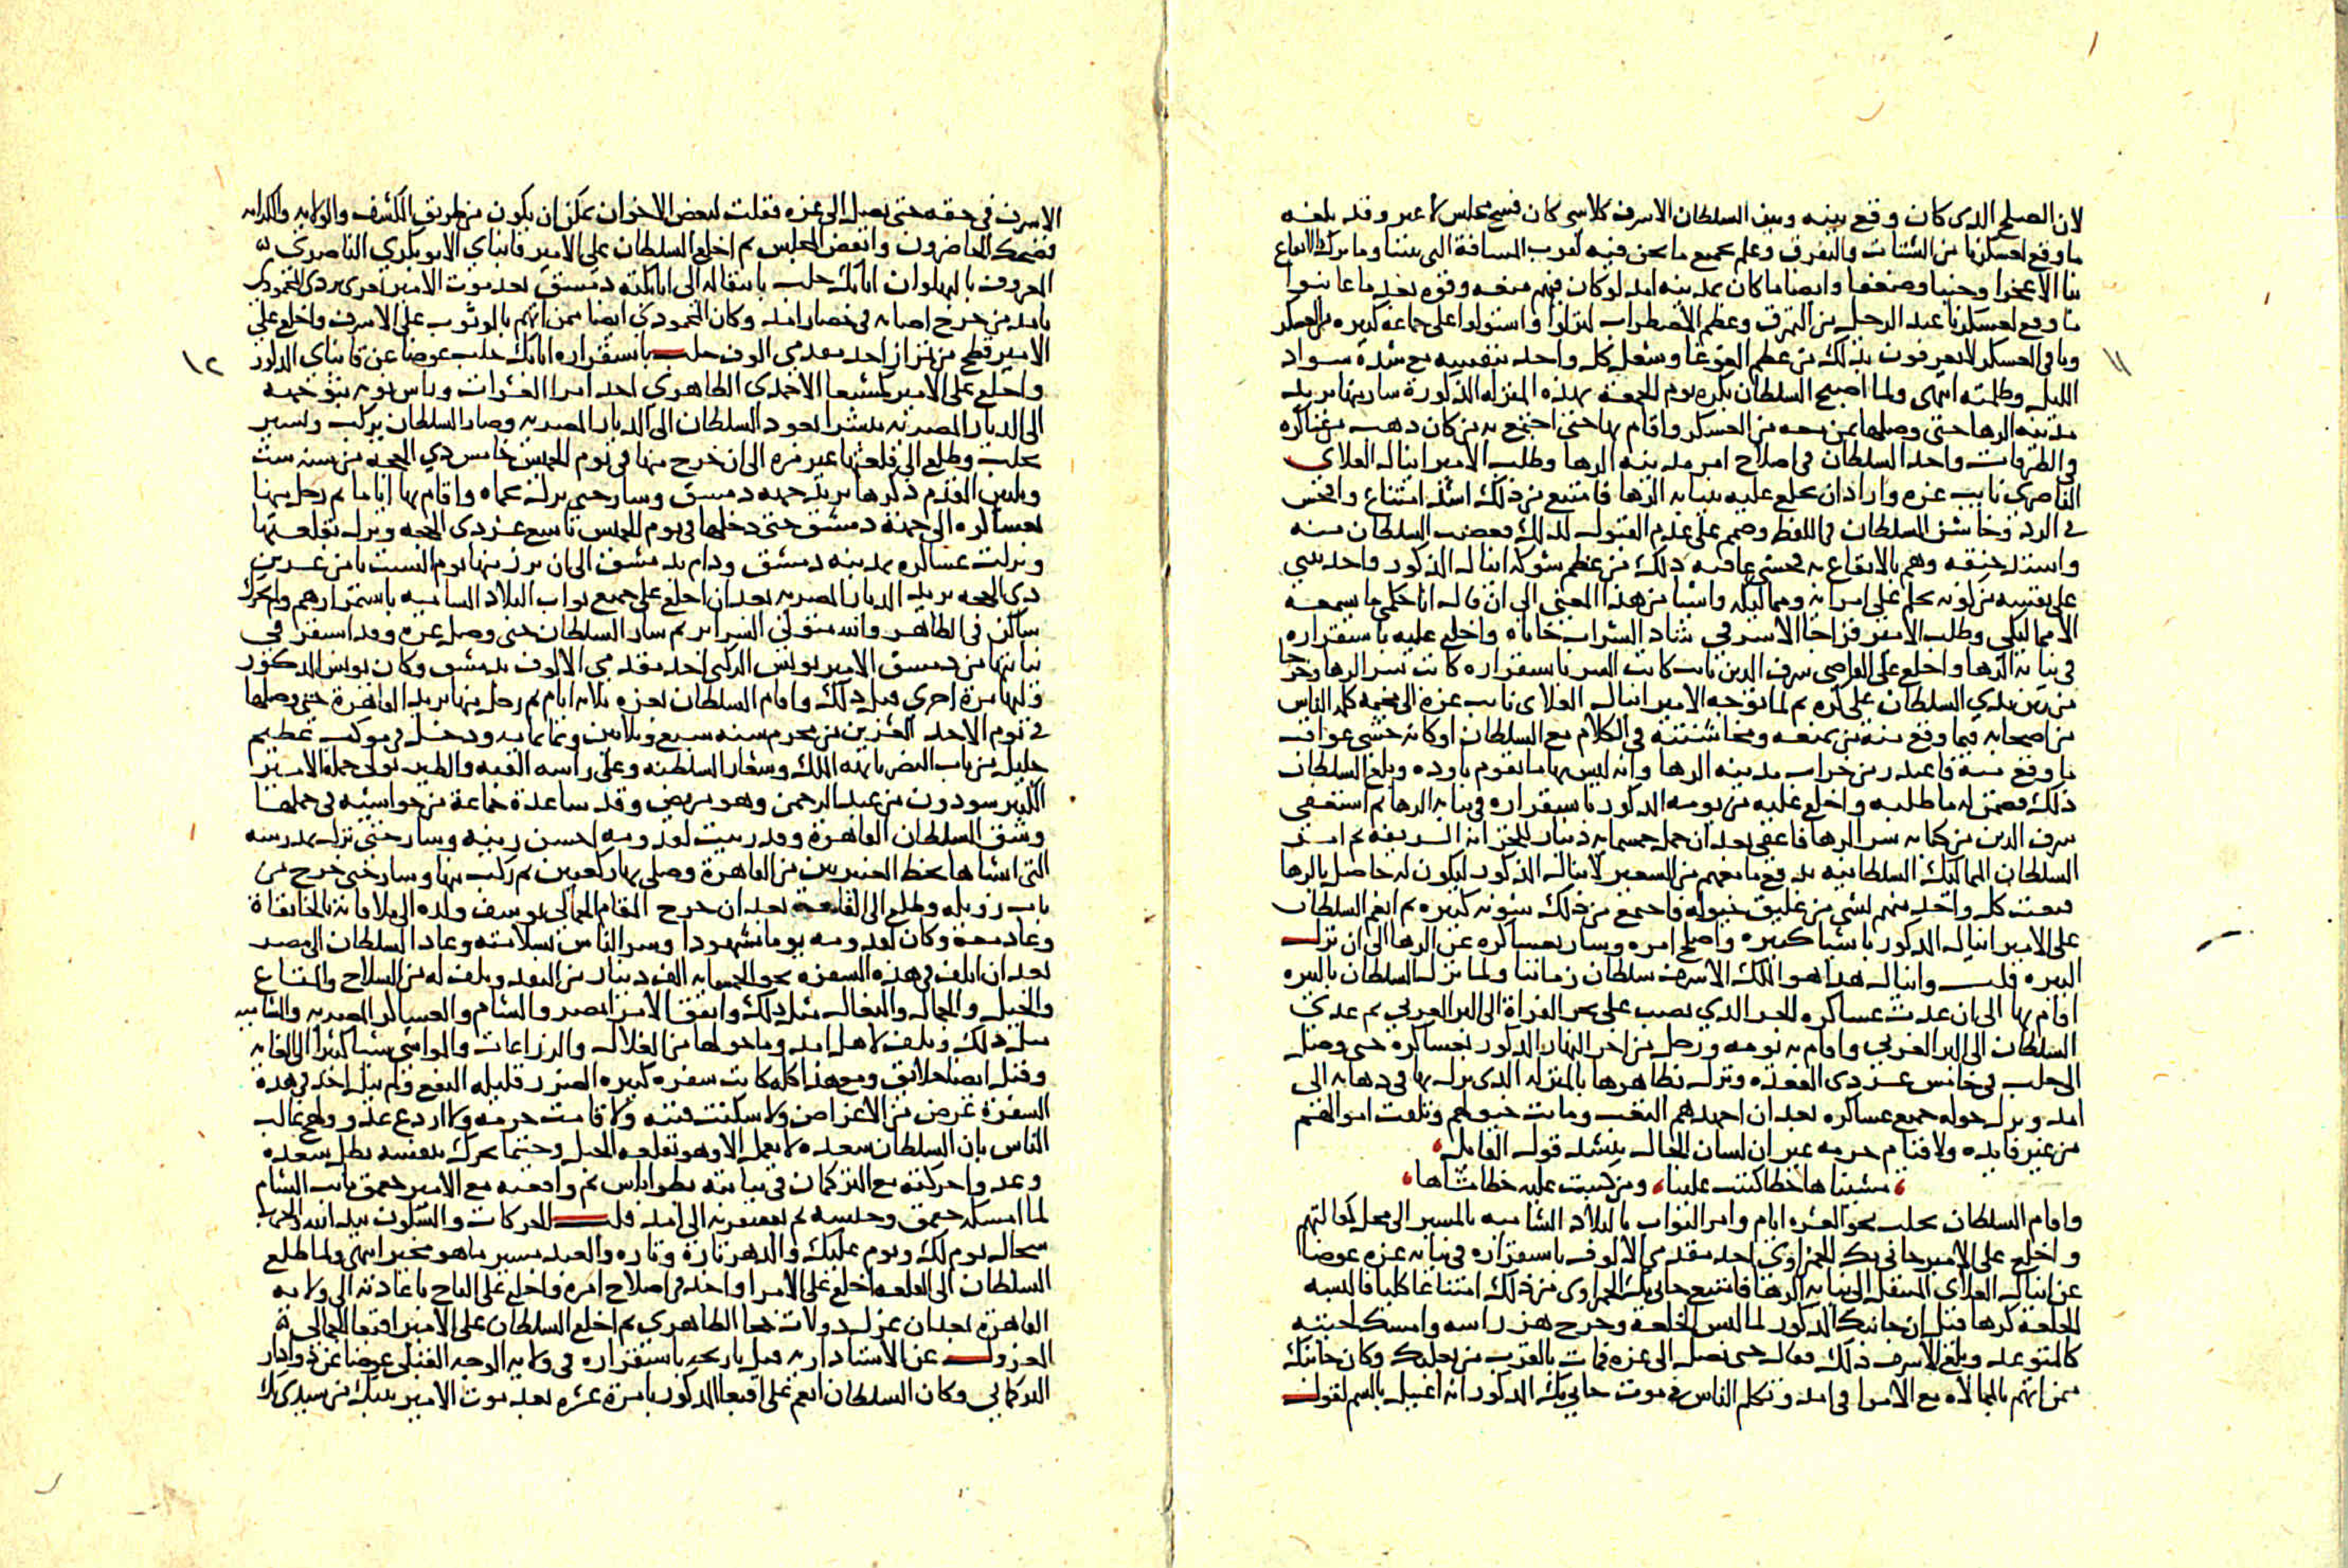 لان الصلح الذى كان وقع بينه وبين السلطان الاشرف كلا شى كان فسخ مجلس لا غير وقد بلغه
ما وقع لعسكرنا من الشتات والتفرق وعلم بجميع ما نحن فيه لقرب المسافة التى بيننا وما ترك الايقاع
بنا الا عجزا وجبنا وضعفا وايضا ما كان بمدينه امد لو كان فيهم منعه وقوه بعد ما عاينوا
ما وقع لعسكرنا عند الرحيل من التمزق وعظم الاضطراب لنزلوا واستولوا على جماعه كبيره من العسكر
وباقى العسكر لا يعرفون بذلك من عظم الغوغا وشغل كل واحد بنفسه مع شدة سواد
الليل وظلمته انتهى ولما اصبح السلطان بكره يوم الجمعه بهذه المنزله المذكورة سار منها يريد
مدينه الرها حتى وصلها بمن معه من العسكر واقام بها حتى اجتمع به من كان ذهب من عساكره
والطرقات واخذ السلطان فى اصلاح امر مدينه الرها وطلب الامير اينال العلاى
الناصرى نايب غزه واراد ان يخلع عليه بنيابه الرها فامتنع من ذلك اشد امتناع وافحش
فى الرد وخاشن السلطان فى اللفظ وصمم على عدم القبول لذلك فغضب السلطان منه
واشتد حنقه وهم بالايقاع به فخشى عاقبه ذلك من عظم شوكه اينال المذكور واخذ يثنى
على نفسه من كونه يحكم على امرائه ومماليكه واشيا من هذا المعنى الى ان قال انا حكمى ما سمعه
الا مماليكى وطلب الامير قراجا الاشرفى شاد الشراب خاناه واخلع عليه باستقراره
فى نيابه الرها واخلع على القاضى شرف الدين نايب كاتب السر باستقراره كاتب سر الرها وخرجا
من بين يدى السلطان على كره ثم لما توجه الامير اينال العلاى نايب غزه الى مخيمه كلمه الناس
من اصحابه فيما وقع منه من تمنعه ومخاشنته فى الكلام مع السلطان او كانه خشى عواقب
ما وقع منه فاعتذر من خراب مدينه الرها وانه ليس بها ما يقوم باوده وبلغ السلطان
ذلك فضمن له ما طلبه واخلع عليه من يومه المذكور باستقراره فى نيابه الرها ثم استعفى
شرف الدين من كتابه سر الرها فاعفى بعد ان حمل خمسمايه دينار للخزانه الشريفه ثم امر
السلطان المماليك السلطانيه بدفع ما معهم من الشعير لاينال المذكور ليكون له حاصل بالرها
فبعث كل واحد منهم بشى من عليق خيوله فاجتمع من ذلك شونه كبيره ثم انعم السلطان
على الامير اينال المذكور باشيا كثيره واصلح امره وسار بعساكره عن الرها الى ان نزل
البيره قلت واينال هذا هو الملك الاشرف سلطان زماننا ولما نزل السلطان بالبيره
اقام بها الى ان عدت عساكره الجسر الذي نصب على بحر الفراة الى البر الغربي ثم عدى
السلطان الى البر الغربي واقام به يومه ورحل من اخر النهار المذكور بعساكره حتى وصل
الى حلب فى خامس عشر ذى القعده ونزل بظاهرها بالمنزله الذى نزل بها فى ذهابه الى
امد ونزل حوله جميع عساكره بعد ان اجهدهم التعب وماتت خيولهم وتلفت اموالهم
من غير فايده ولا قيام حرمه غير ان لسان الحال ينشد قول القايل
مشيناها خطا كتبت علينا ومن كتبت عليه خطا مشاها
واقام السلطان بحلب نحو العشره ايام وامر النواب بالبلاد الشاميه بالمسير الى محل كفالتهم
واخلع على الامير جانى بك الحمزاوى احد مقدمى الالوف باستقراره فى نيابه غزه عوضا
عن اينال العلاى المنتقل الى نيابه الرها فامتنع جانى بك الحمزاوى من ذلك امتناعا كليا فالبسه
الخلعة كرها فقيل ان جانبك المذكور لما لبس الخلعة وخرج هز راسه وامسك لحيته
كالمتوعد وبلغ الاشرف ذلك فقال حتى يصل الى غزه فمات بالقرب من بعلبك وكان جانبك
ممن اتهم بالممالاه مع الامرا فى امد وتكلم الناس فى موت جانى بك المذكور انه اغتيل بالسم لقول
الاشرف فى حقه حتى يصل الى غزه فقلت لبعض الاخوان يمكن ان يكون من طريق الكشف والولايه والكرامه
فضحك الحاضرون وانفض المجلس ثم اخلع السلطان على الامير قانباي الابو بكري الناصرى
المعروف بالبهلوان اتابك حلب بانتقاله الى اتابكيه دمشق بعد موت الامير تغرى بردى المحمودى
بامد من جرح اصابه فى حصار امد وكان المحمودى ايضا ممن اتهم بالوثوب على الاشرف واخلع على
الامير قطج من تمراز احد مقدمى الوف حلب باستقراره اتابك حلب عوضا عن قانباى المذكور
واخلع على الامير كمشبغا الاحمدى الظاهري احد امرا العشرات وراس نوبه بتوجهه
الى الديار المصريه مبشرا بعود السلطان الى الديار المصريه وصار السلطان يركب ويسير
بحلب وطلع الى قلعتها غير مره الى ان خرج منها فى يوم الخميس خامس ذي الحجه من سنه ست
وثلثين المقدم ذكرها يريد جهه دمشق وسار حتى نزل بحماه واقام بها اياما ثم رحل منها
بعساكره الى جهة دمشق حتى دخلها فى يوم الخميس تاسع عشر ذى الحجه ونزل بقلعتها
ونزلت عساكره بمدينه دمشق ودام بدمشق الى ان برز منها يوم السبت ثامن عشرين
ذى الحجه يريد الديار المصريه بعد ان اخلع على جميع نواب البلاد الشاميه باستمرارهم والحرك
ساكن فى الظاهر والله متولى السراير ثم سار السلطان حتى وصل غزه وقد استقر فى
نيابتها من دمشق الامير يونس الركنى احد مقدمى الالوف بدمشق وكان يونس المذكور
وليها مرة اخرى قبل ذلك واقام السلطان بغزه ثلاثه ايام ثم رحل منها يريد القاهرة حتى وصلها
فى يوم الاحد العشرين من محرم سنه سبع وثلاثين وثمانمايه ودخل فى موكب عظيم
جليل من باب النصر بابهه الملك وشعار السلطنه وعلى راسه القبه والطير تولى حمله الامير
الكبير سودون من عبد الرحمن وهو مريض وقد ساعدة جماعة من حواشيه فى حملها
وشق السلطان القاهرة وقد زينت لقدومه احسن زينه وسار حتى نزل بمدرسته
التى انشاها بخط العنبريين من القاهرة وصلى بها ركعتين ثم ركب منها وسار حتى خرج من
باب زويله وطلع الى القلعة بعد ان خرج المقام الجمالى يوسف ولده الى ملاقاته بالخانقاة
وعاد معه وكان لقدومه يوما مشهودا وسر الناس بسلامته وعاد السلطان الى مصر
بعد ان اتلف فى هذه السفره نحو الخمسمايه الف دينار من النقد وتلف له من السلاح والمتاع
والخيل والجمال والبغال مثل ذلك وانفق الامرا بمصر والشام والعساكر المصريه والشاميه
مثل ذلك وتلف لاهل امد وما حولها من الغلال والزراعات والمواشى شيا كثيرا الى الغايه
وقتل ايضا خلايق ومع هذا كله كانت سفره كبيره الضرر قليله النفع ولم ينل احد فى هذه
السفرة غرض من الاغراض ولا سكنت فتنه ولا قامت حرمه ولا اردع عدو ولهج غالب
الناس بان السلطان سعده لا يعمل الا وهو بقلعه الجبل وحيثما تحرك بنفسه بطل سعده
وعدوا حركته مع التركمان فى نيابته بطرابلس ثم واقعته مع الامير جقمق نايب الشام
لما امسكه جقمق وحبسه ثم سفرته الى امد قلت الحركات والسكون بيد الله والحرب
سجال يوم لك ويوم عليك والدهر تارة وتاره والعبد مسير ما هو مخير انتهى ولما طلع
السلطان الى القلعه اخلع على الامرا واخذ فى اصلاح امره واخلع على التاج باعادته الى ولايه
القاهرة بعد ان عزل دولات خجا الظاهري ثم اخلع السلطان على الامير اقبغا الجمالى
المعزول عن الاستاداريه قبل تاريخه باستقراره فى ولايه الوجه القبلى عوضا عن دوادار
التركماني وكان السلطان انعم على اقبغا المذكور بامرة عشره بعد موت الامير تنبك من سيدى بك
١١
١٢